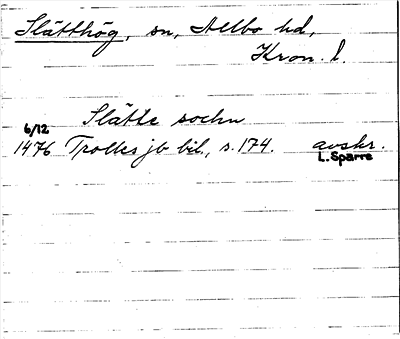 Slätthög, sn, Allbo hd,
Kron. l.
Slätte sochn
6/12
1476 Trolles jb bil., s. 174. avskr.
L. Sparre